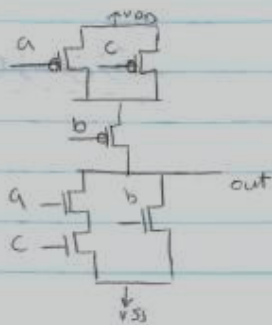 VDD
a c
b
out
a b
c
VSS